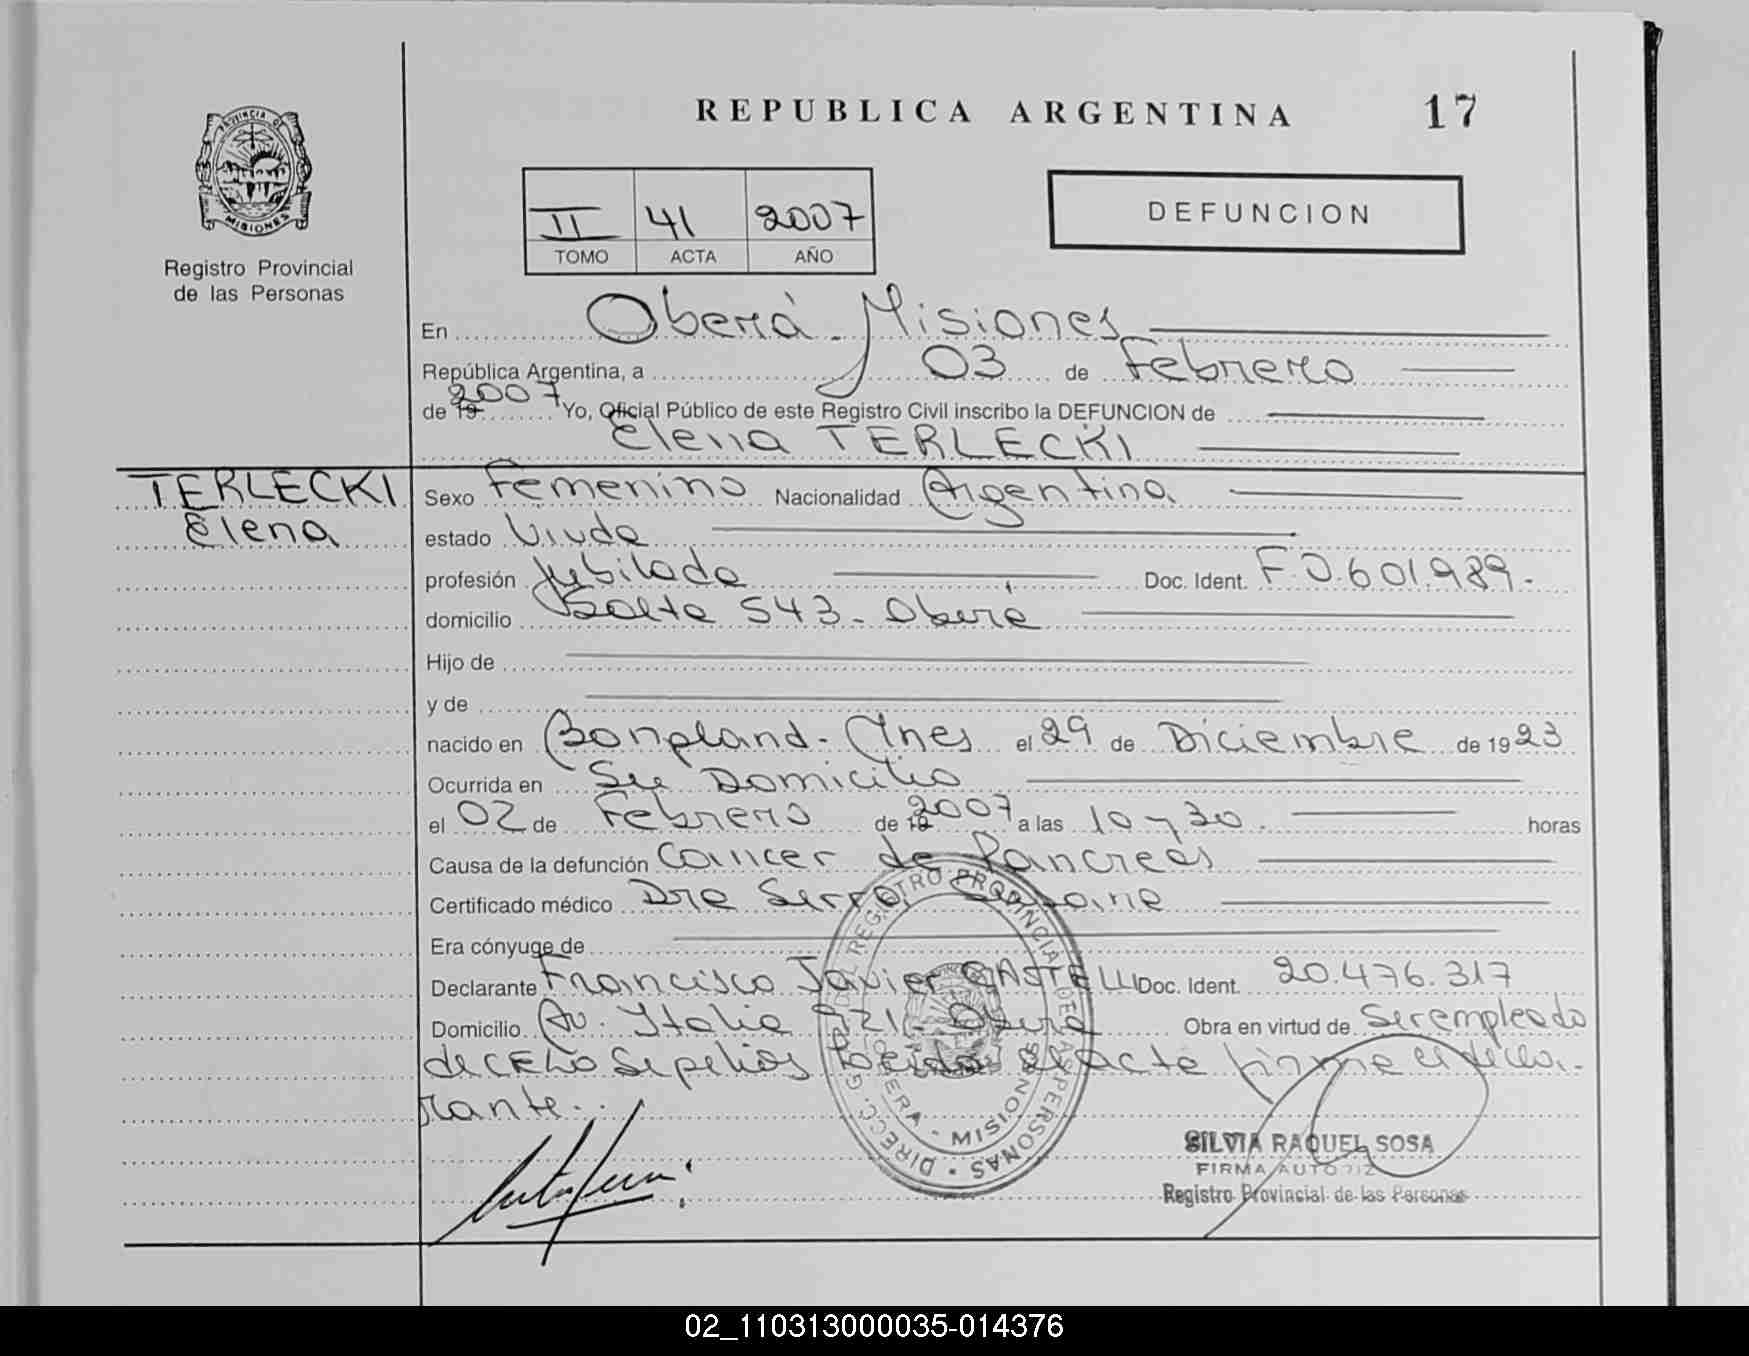 REPUBLICA ARGENTINA 17
PROVINCIA DE
MISIONES
Registro Provincial
de las Personas
II 41 2007
TOMO ACTA AÑO
DEFUNCION
En Oberá - Misiones
República Argentina, a 03 de Febrero
de 19 2007 Yo, Oficial Público de este Registro Civil inscribo la DEFUNCION de
Elena TERLECKI
TERLECKI
Elena
Sexo Femenino Nacionalidad Argentina
estado Viuda
profesión Jubilada Doc. Ident. F 0.601.989.
domicilio Salta 543 - Oberá
Hijo de
y de
nacido en Bonpland - Mnes el 29 de Diciembre de 1923
Ocurrida en Su Domicilio
el 02 de Febrero de 19 2007 a las 10 y 30 horas
Causa de la defunción Cancer de Pancreas
Certificado médico Dra Serra
Era cónyuge de
Declarante Francisco Javier GASTELLU Doc. Ident. 20.476.317
Domicilio Av. Italia Oberá Obra en virtud de Ser empleado
de CELO Sepelios el acta firma el decla-
rante.
DIRECC. G. DEL REGISTRO PROVINCIAL DE LAS PERSONAS
OBERA - MISIONES
SILVIA RAQUEL SOSA
FIRMA AUTORIZ
Registro Provincial de las Personas
02_110313000035-014376